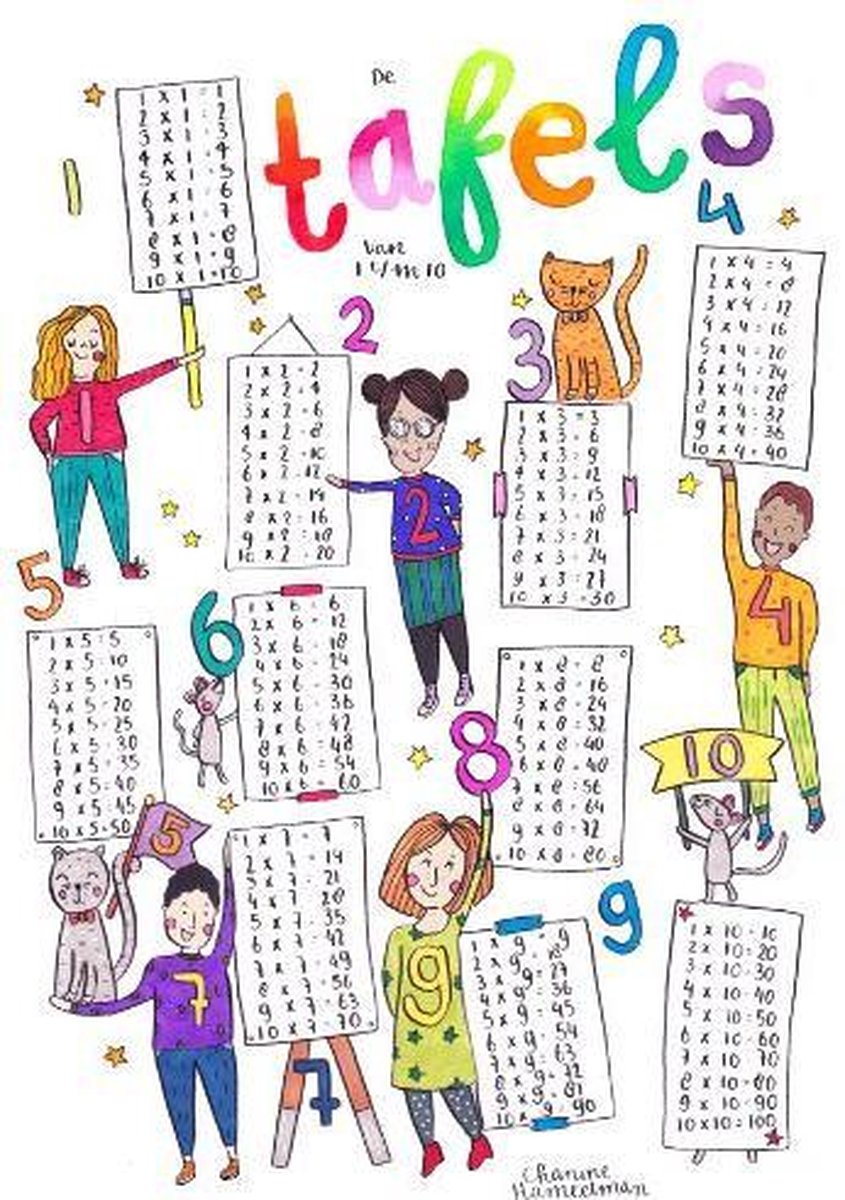 De
tafels
van
1 t/m 10
1
1 x 1 = 1
2 x 1 = 2
3 x 1 = 3
4 x 1 = 4
5 x 1 = 5
6 x 1 = 6
7 x 1 = 7
8 x 1 = 8
9 x 1 = 9
10 x 1 = 10
1
2
1 x 2 = 2
2 x 2 = 4
3 x 2 = 6
4 x 2 = 8
5 x 2 = 10
6 x 2 = 12
7 x 2 = 14
8 x 2 = 16
9 x 2 = 18
10 x 2 = 20
2
3
1 x 3 = 3
2 x 3 = 6
3 x 3 = 9
4 x 3 = 12
5 x 3 = 15
6 x 3 = 18
7 x 3 = 21
8 x 3 = 24
9 x 3 = 27
10 x 3 = 30
4
1 x 4 = 4
2 x 4 = 8
3 x 4 = 12
4 x 4 = 16
5 x 4 = 20
6 x 4 = 24
7 x 4 = 28
8 x 4 = 32
9 x 4 = 36
10 x 4 = 40
4
5
1 x 5 = 5
2 x 5 = 10
3 x 5 = 15
4 x 5 = 20
5 x 5 = 25
6 x 5 = 30
7 x 5 = 35
8 x 5 = 40
9 x 5 = 45
10 x 5 = 50
5
6
1 x 6 = 6
2 x 6 = 12
3 x 6 = 18
4 x 6 = 24
5 x 6 = 30
6 x 6 = 36
7 x 6 = 42
8 x 6 = 48
9 x 6 = 54
10 x 6 = 60
7
1 x 7 = 7
2 x 7 = 14
3 x 7 = 21
4 x 7 = 28
5 x 7 = 35
6 x 7 = 42
7 x 7 = 49
8 x 7 = 56
9 x 7 = 63
10 x 7 = 70
7
8
1 x 8 = 8
2 x 8 = 16
3 x 8 = 24
4 x 8 = 32
5 x 8 = 40
6 x 8 = 48
7 x 8 = 56
8 x 8 = 64
9 x 8 = 72
10 x 8 = 80
9
9
1 x 9 = 9
2 x 9 = 18
3 x 9 = 27
4 x 9 = 36
5 x 9 = 45
6 x 9 = 54
7 x 9 = 63
8 x 9 = 72
9 x 9 = 81
10 x 9 = 90
10
1 x 10 = 10
2 x 10 = 20
3 x 10 = 30
4 x 10 = 40
5 x 10 = 50
6 x 10 = 60
7 x 10 70
8 x 10 = 80
9 x 10 = 90
10 x 10 = 100